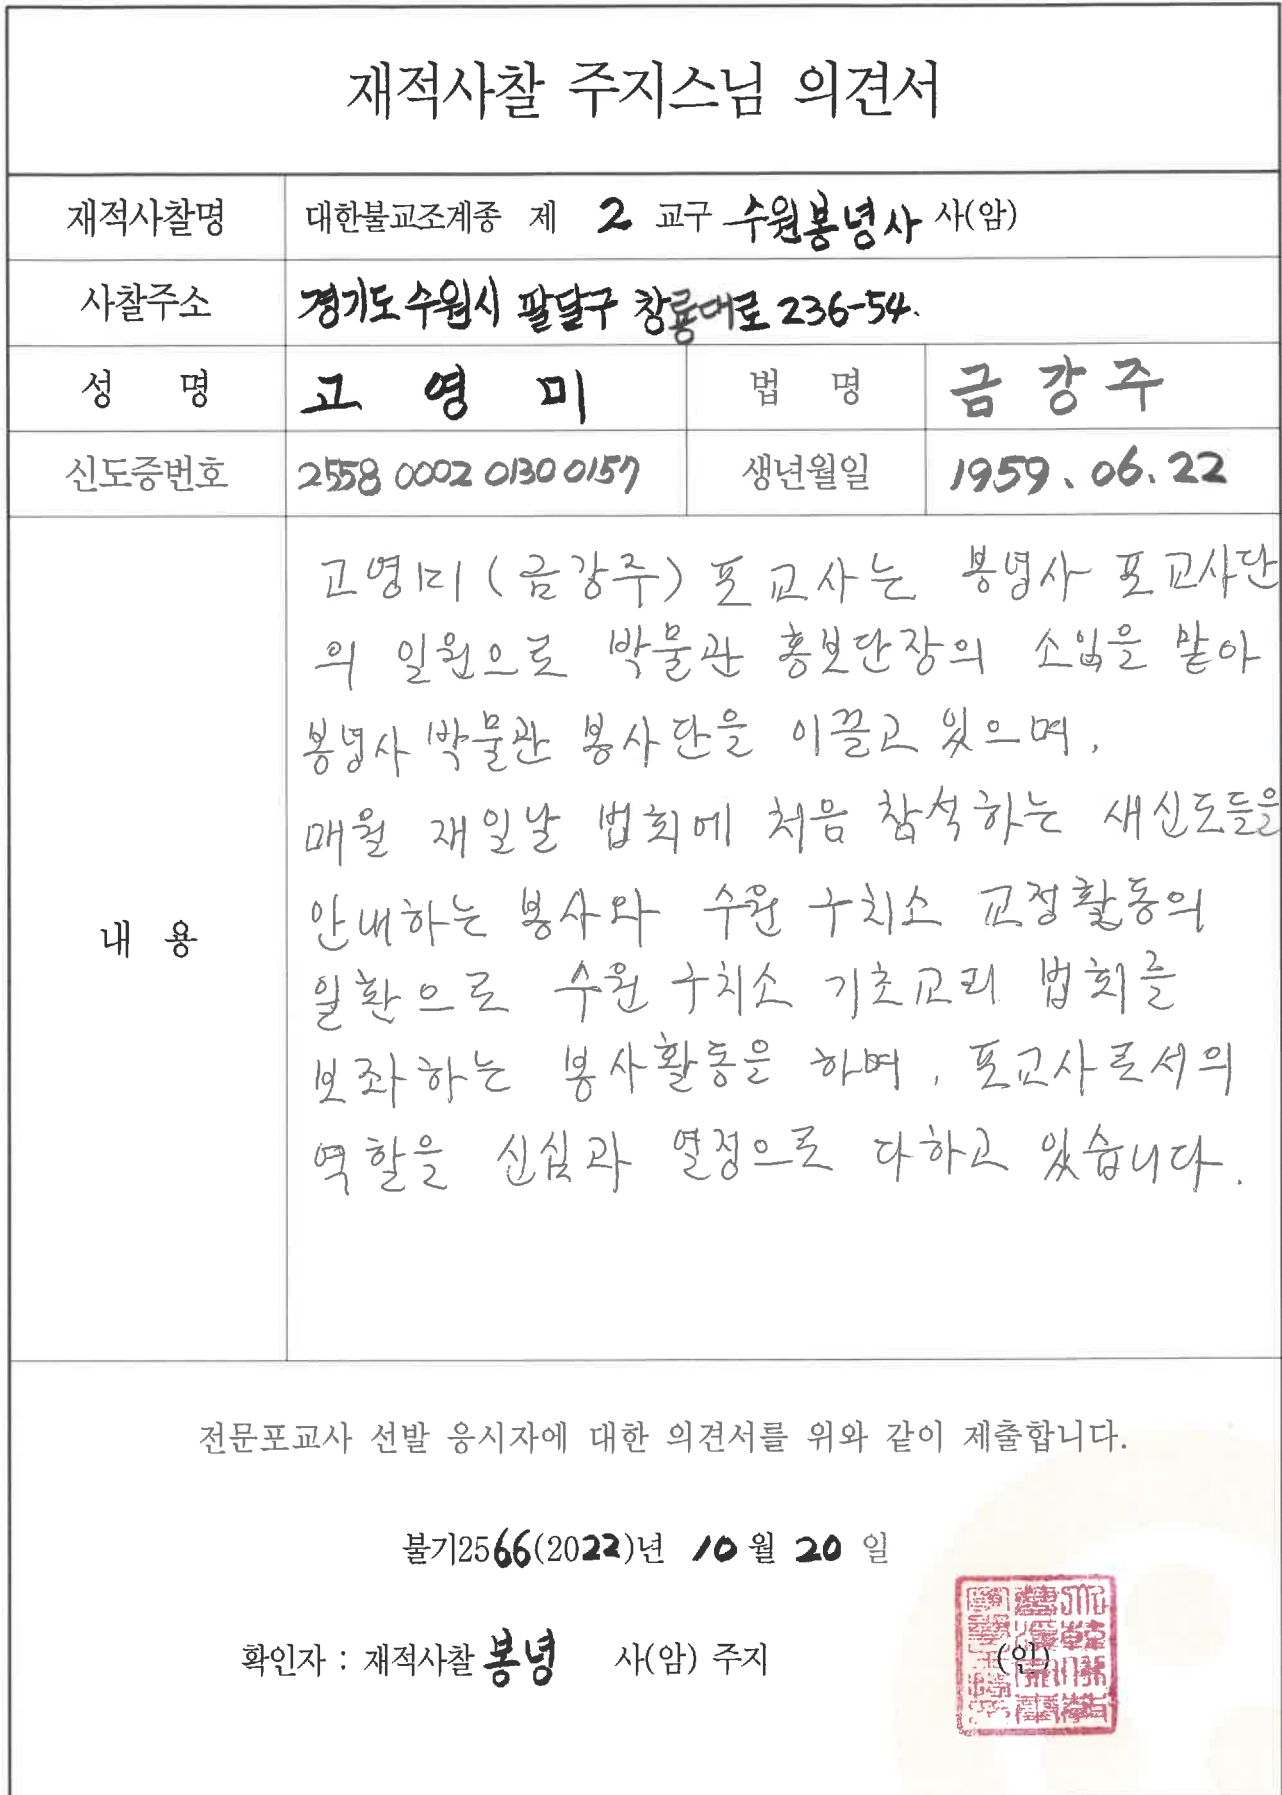 재적사찰 주지스님 의견서
재적사찰명 대한불교조계종 제 2 교구 수원봉녕사 사(암)
사찰주소 경기도 수원시 팔달구 창룡대로 236-54.
성 명 고 영 미 법 명 금 강 주
신도증번호 2558 0002 0130 0157 생년월일 1959. 06. 22
내 용
고영미(금강주) 포교사는 봉녕사 포교사단
의 일원으로 박물관 홍보단장의 소임을 맡아
봉녕사 박물관 봉사단을 이끌고 있으며,
매월 재일날 법회에 처음 참석하는 새신도들을
안내하는 봉사와 수원 구치소 교정활동의
일환으로 수원 구치소 기초교리 법회를
보좌하는 봉사활동을 하며, 포교사로서의
역할을 신심과 열정으로 다하고 있습니다.
전문포교사 선발 응시자에 대한 의견서를 위와 같이 제출합니다.
불기2566(2022)년 10월 20 일
확인자 : 재적사찰 봉녕 사(암) 주지 (인)